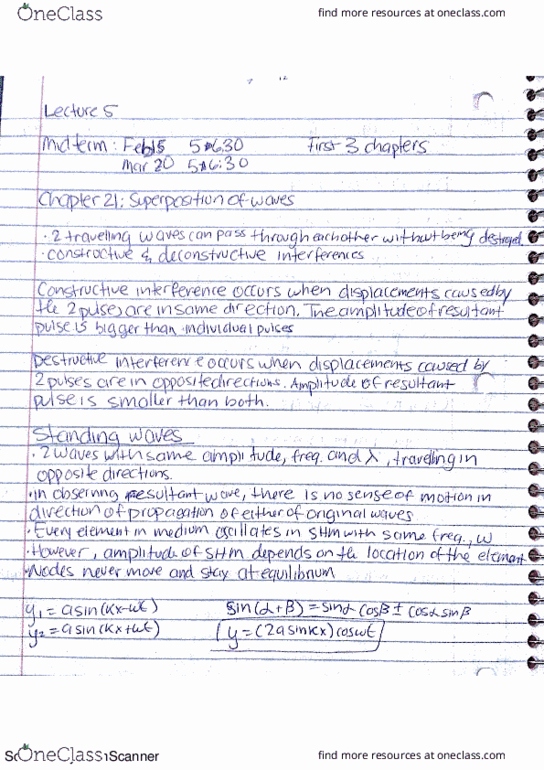 OneClass
find more resources at oneclass.com
Lecture 5
Midterm: Feb 15 5-6:30 First 3 chapters
Mar 20 5-6:30
Chapter 21: Superposition of waves
· 2 travelling waves can pass through eachother without being destroyed
· constructive & deconstructive interferences
Constructive interference occurs when displacements caused by
the 2 pulses are in same direction. The amplitude of resultant
pulse is bigger than individual pulses
Destructive interference occurs when displacements caused by
2 pulses are in opposite directions. Amplitude of resultant
pulse is smaller than both.
Standing waves
· 2 waves with same amplitude, freq. and λ, traveling in
opposite directions.
· in observing resultant wave, there is no sense of motion in
direction of propagation of either of original waves
· Every element in medium oscillates in SHM with same freq., ω
· However, amplitude of SHM depends on the location of the element
· Nodes never move and stay at equilibrium
y₁ = a sin(kx-ωt) sin(α+β) = sinα cosβ ± cosα sinβ
y₂ = a sin(kx+ωt) y = (2a sin kx) cosωt
OneClass
Scanner
find more resources at oneclass.com